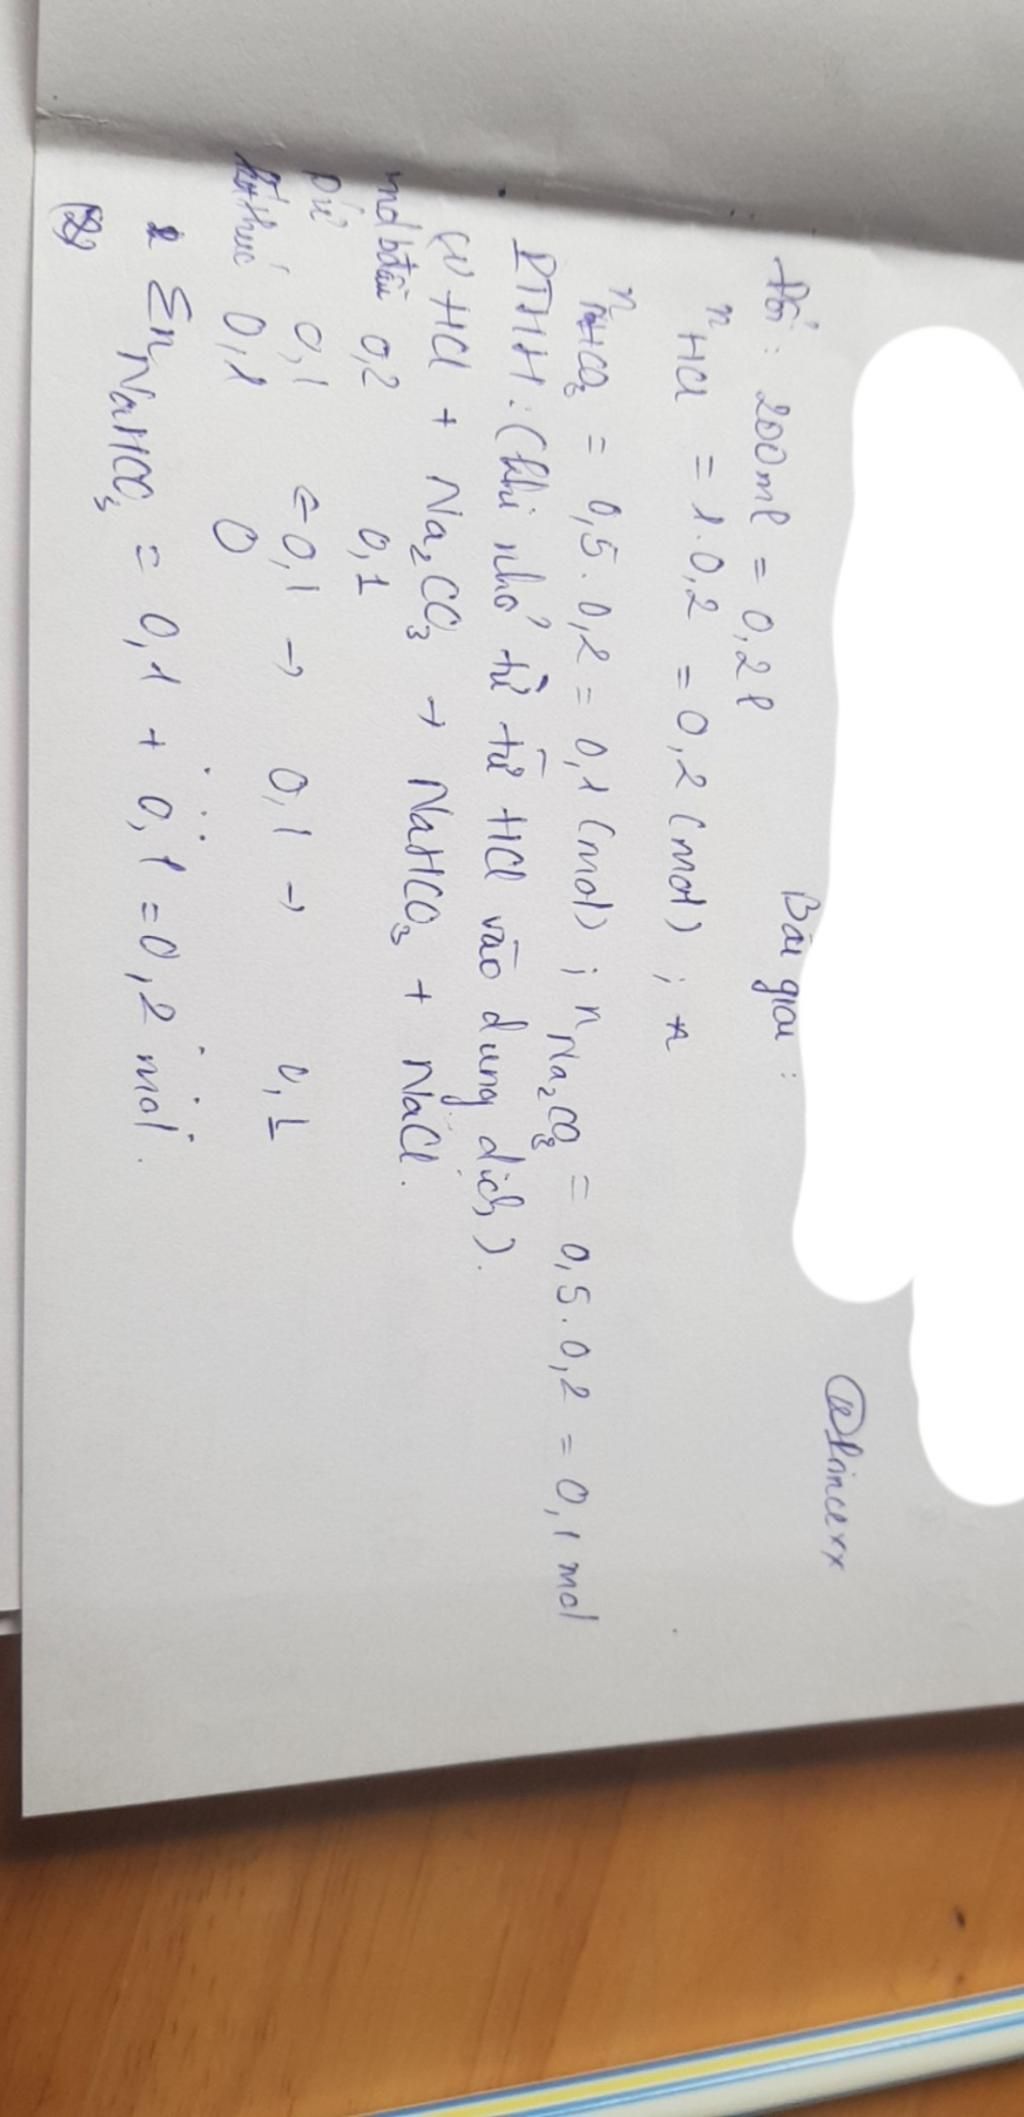 @Princexx
Bài giải :
Đổi : 200ml = 0,2l
nHCl = 1.0,2 = 0,2 (mol) ; n
nNaHCO₃ = 0,5.0,2 = 0,1 (mol) ; nNa₂CO₃ = 0,5.0,2 = 0,1 mol
PTHH : (khi nhỏ từ từ HCl vào dung dịch).
(1) HCl + Na₂CO₃ → NaHCO₃ + NaCl.
mol bđầu 0,2 0,1
pứ 0,1 ← 0,1 → 0,1 → 0,1
kthúc 0,1 0
Σ nNaHCO₃ = 0,1 + 0,1 = 0,2 mol.
(2)